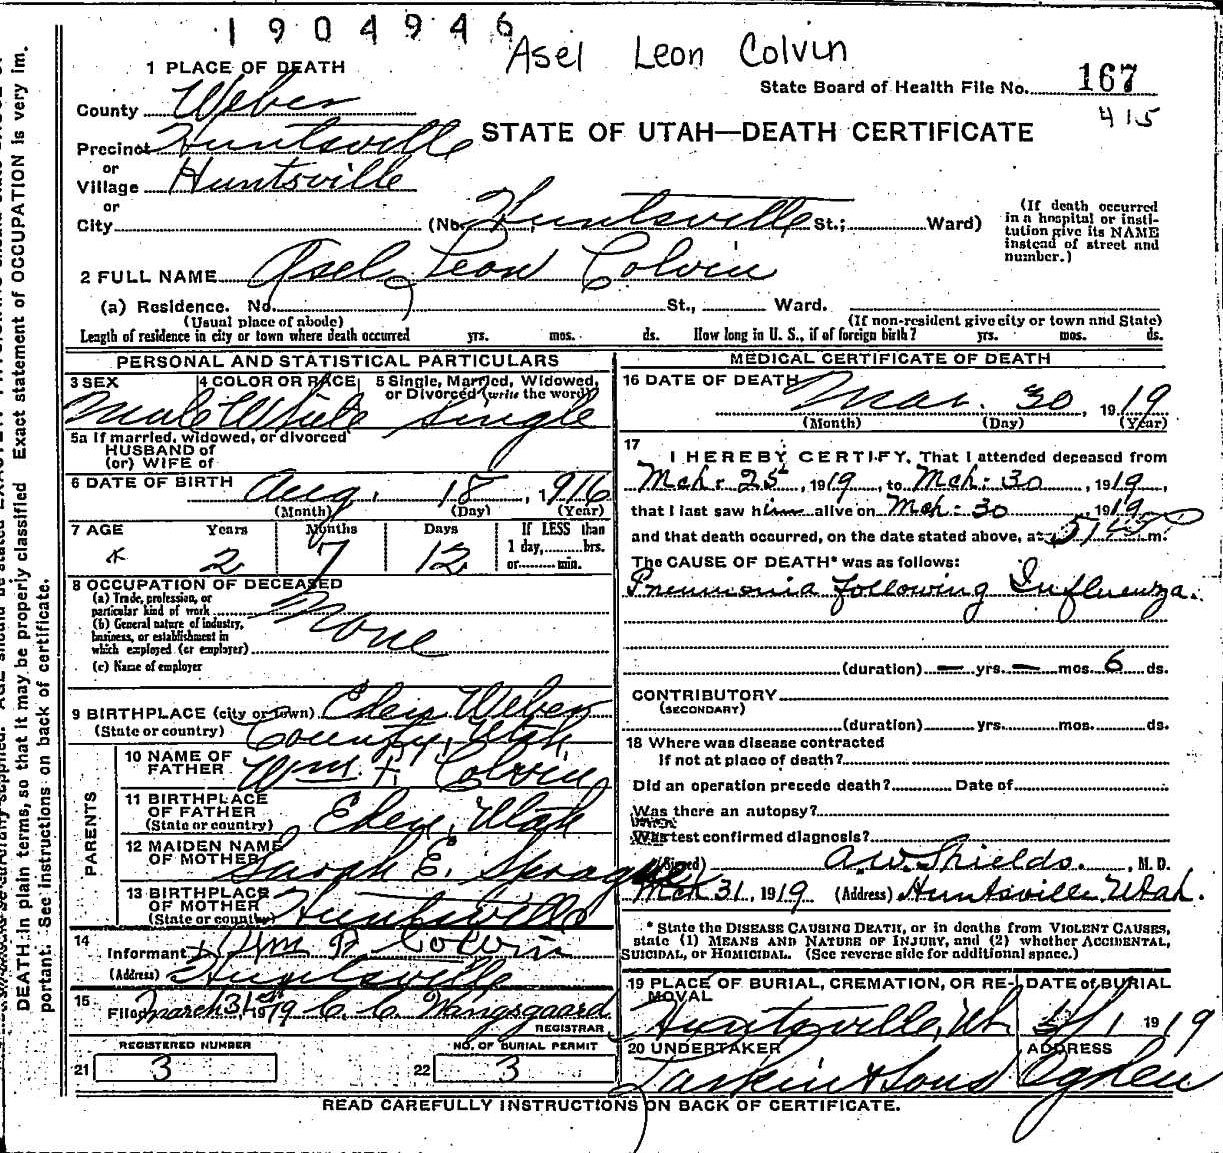 1904946
Asel Leon Colvin
1 PLACE OF DEATH
State Board of Health File No. 167
415
County Weber
STATE OF UTAH—DEATH CERTIFICATE
Precinct Huntsville
or
Village Huntsville
or
City (No. Huntsville St.; Ward)
(If death occurred in a hospital or insti-
tution give its NAME
instead of street and
number.)
2 FULL NAME Asel Leon Colvin
(a) Residence. No. St., Ward.
(Usual place of abode) (If non-resident give city or town and State)
Length of residence in city or town where death occurred yrs. mos. ds. How long in U. S., if of foreign birth? yrs. mos. ds.
PERSONAL AND STATISTICAL PARTICULARS
3 SEX 4 COLOR OR RACE 5 Single, Married, Widowed,
or Divorced (write the word)
Male White Single
5a If married, widowed, or divorced
HUSBAND of
(or) WIFE of
6 DATE OF BIRTH Aug. 18, 1916
(Month) (Day) (Year)
7 AGE Years Months Days If LESS than
1 day, hrs.
or min.
2 7 12
8 OCCUPATION OF DECEASED
(a) Trade, profession, or
particular kind of work None
(b) General nature of industry,
business, or establishment in
which employed (or employer)
(c) Name of employer
9 BIRTHPLACE (city or town) Eden Weber
(State or country) County, Utah
PARENTS
10 NAME OF
FATHER Wm F. Colvin
11 BIRTHPLACE
OF FATHER
(State or country) Eden, Utah
12 MAIDEN NAME
OF MOTHER Sarah E. Sprague
13 BIRTHPLACE
OF MOTHER
(State or country) Huntsville
14
Informant Wm F Colvin
(Address) Huntsville
15
Filed March 31st 1919 C. C. Wangsgaard
REGISTRAR
REGISTERED NUMBER NO. OF BURIAL PERMIT
21 3 22 3
MEDICAL CERTIFICATE OF DEATH
16 DATE OF DEATH Mar. 30, 1919
(Month) (Day) (Year)
17
I HEREBY CERTIFY, That I attended deceased from
Mch. 25, 1919, to Mch. 30, 1919,
that I last saw him alive on Mch. 30 1919
and that death occurred, on the date stated above, at 5:45 P m.
The CAUSE OF DEATH* was as follows:
Pneumonia following Influenza.
(duration) — yrs. — mos. 6 ds.
CONTRIBUTORY
(SECONDARY)
(duration) yrs. mos. ds.
18 Where was disease contracted
If not at place of death?
Did an operation precede death? Date of
Was there an autopsy?
test confirmed diagnosis?
(Signed) A.W. Shields. , M. D.
Mch 31, 1919 (Address) Huntsville Utah.
* State the DISEASE CAUSING DEATH, or in deaths from VIOLENT CAUSES,
state (1) MEANS AND NATURE OF INJURY, and (2) whether ACCIDENTAL,
SUICIDAL, or HOMICIDAL. (See reverse side for additional space.)
19 PLACE OF BURIAL, CREMATION, OR RE- DATE of BURIAL
MOVAL
Huntsville, Ut 1919
20 UNDERTAKER ADDRESS
Larkin & Sons Ogden
READ CAREFULLY INSTRUCTIONS ON BACK OF CERTIFICATE.
Exact statement of OCCUPATION is very im-
DEATH in plain terms, so that it may be properly classified.
portant. See instructions on back of certificate.